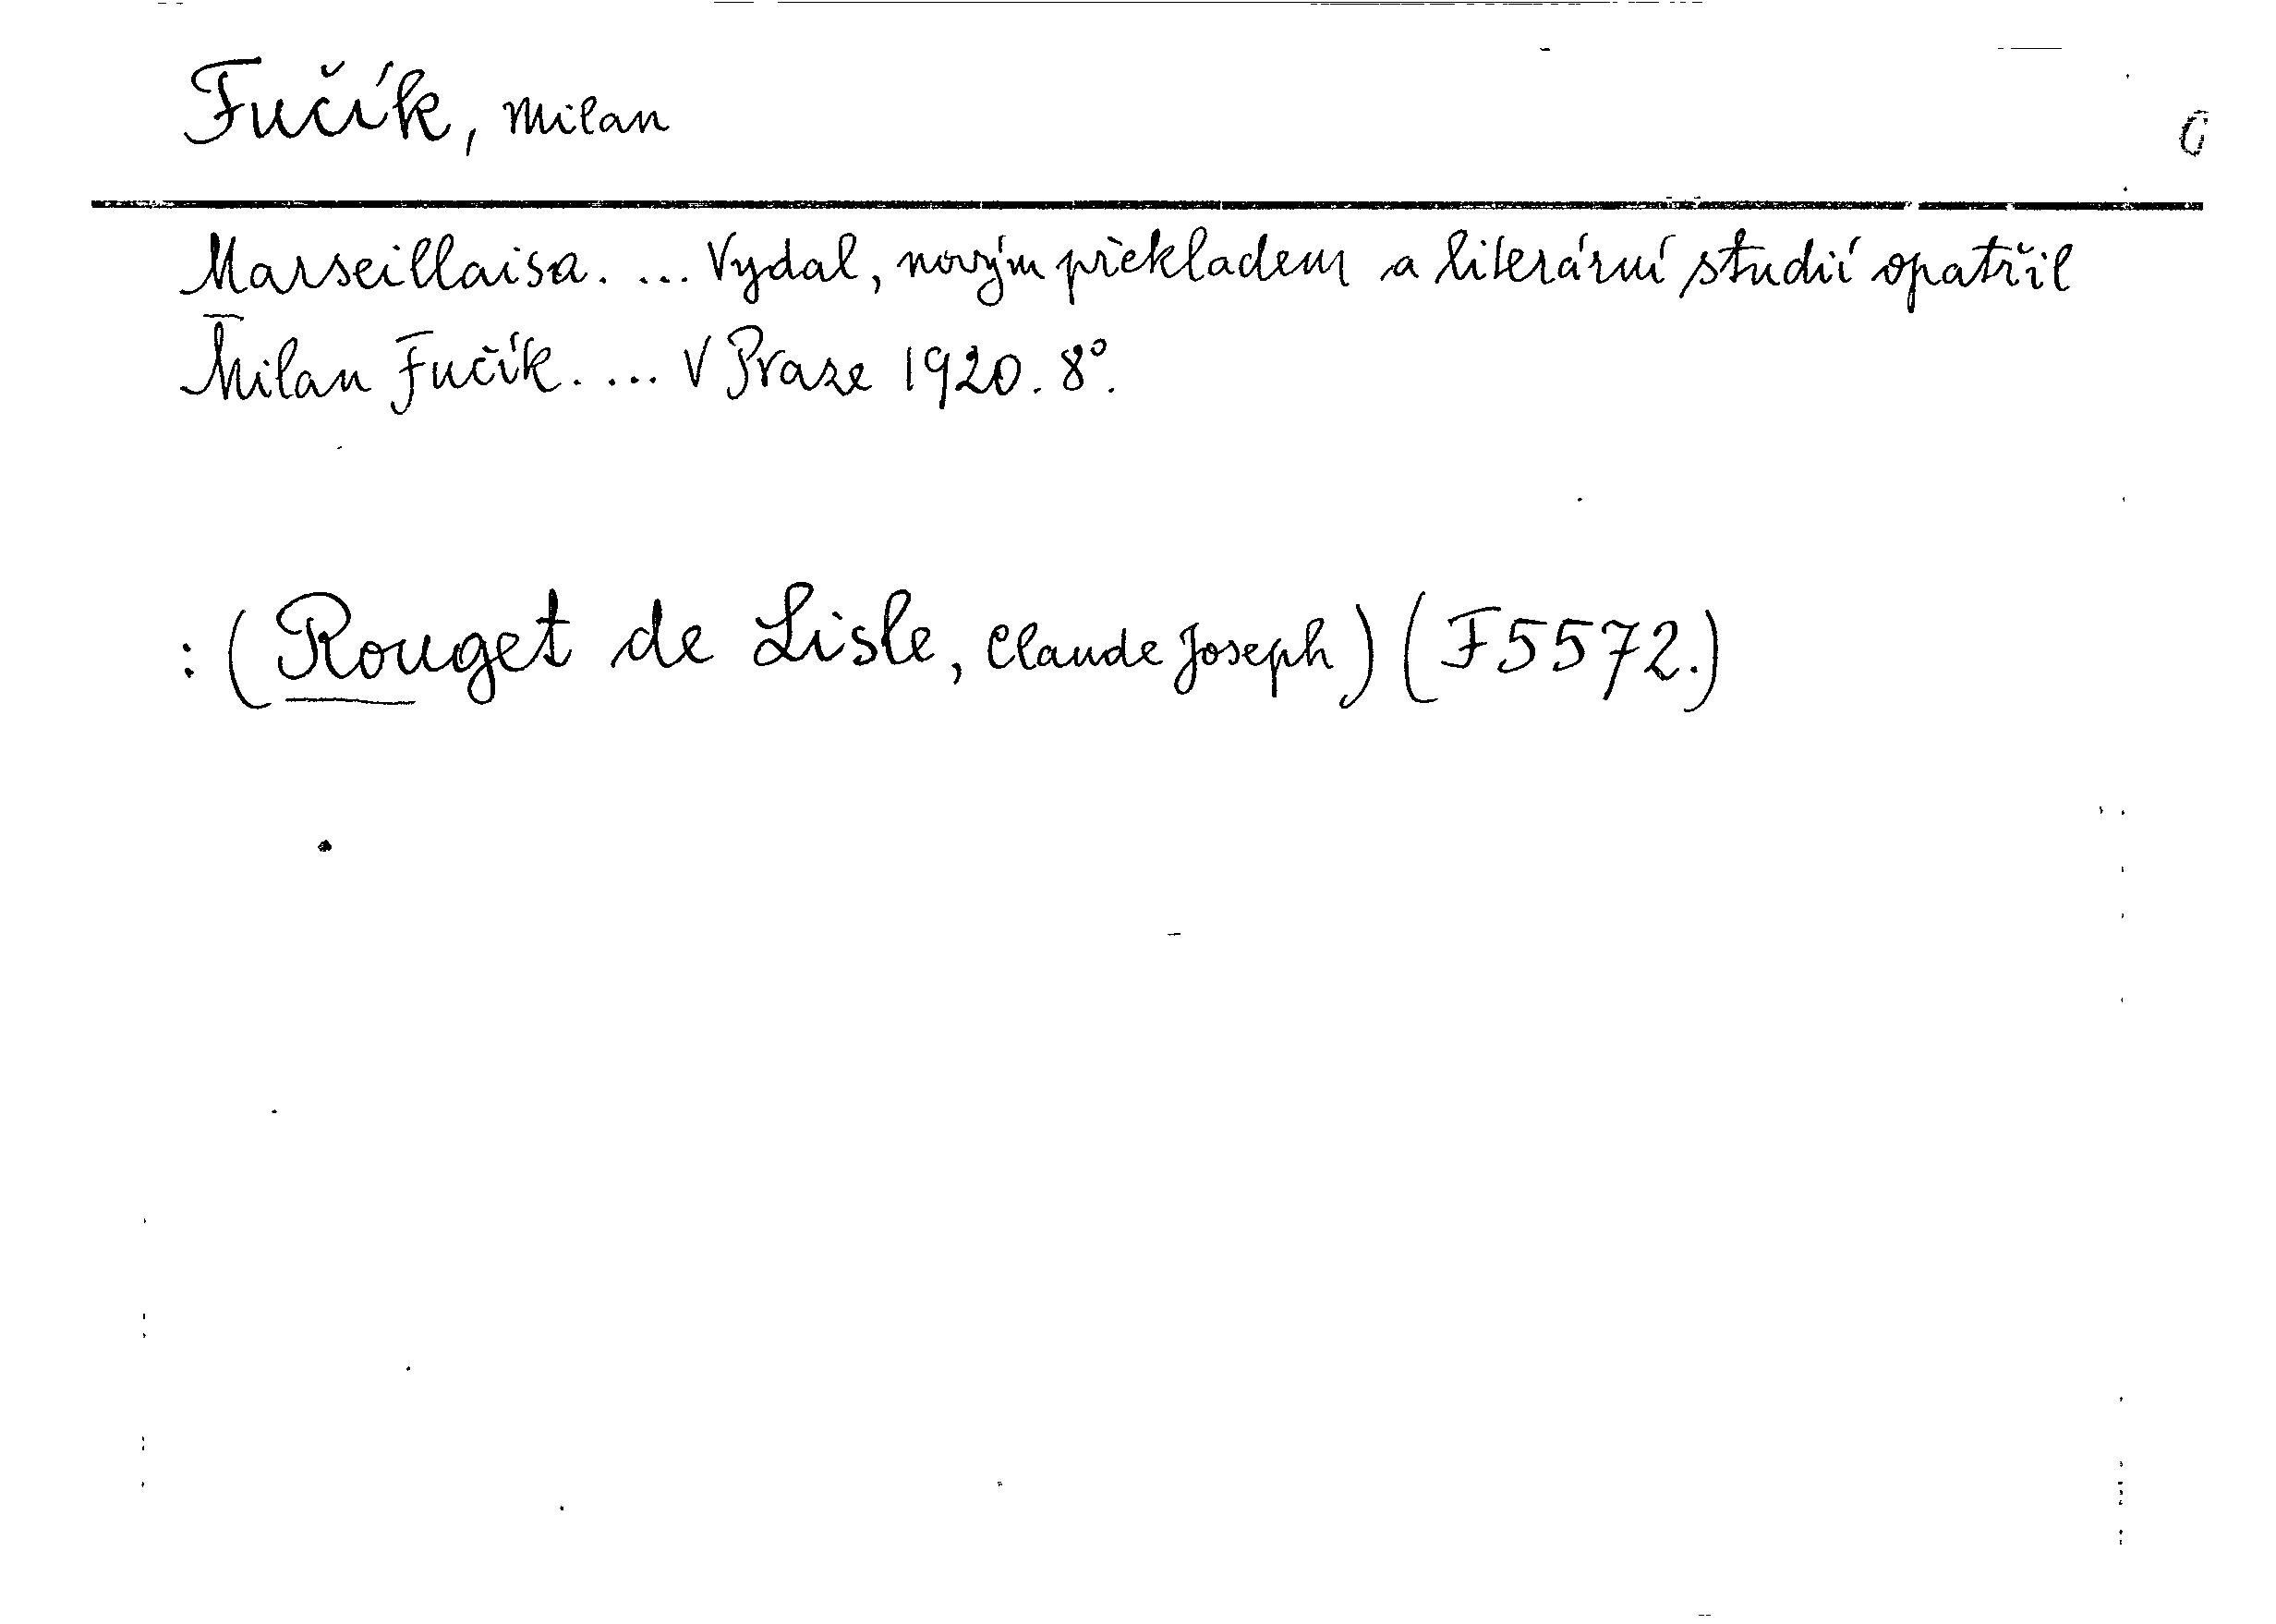 Fučík, Milan
Marseillaisa. ... Vydal, novým překladem a literární studií opatřil
Milan Fučík. ... V Praze 1920. 8°.
: (Rouget de Lisle, Claude Joseph) (F5572.)